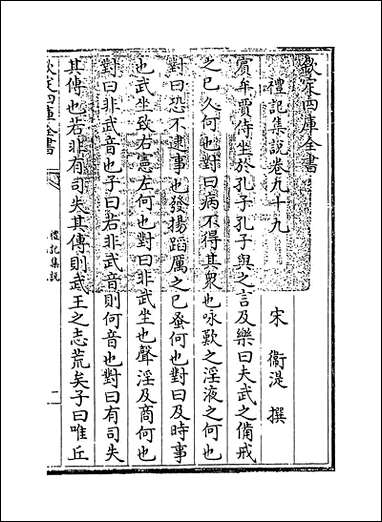 欽定四庫全書
禮記集說卷九十九
宋 衞湜 撰
賓牟賈侍坐於孔子孔子與之言及樂曰夫武之備戒
之已久何也對曰病不得其衆也咏歎之淫液之何也
對曰恐不逮事也發揚蹈厲之已蚤何也對曰及時事
也武坐致右憲左何也對曰非武坐也聲淫及商何也
對曰非武音也子曰若非武音則何音也對曰有司失
其傳也若非有司失其傳則武王之志荒矣子曰唯丘
欽定四庫全書
禮記集說
一